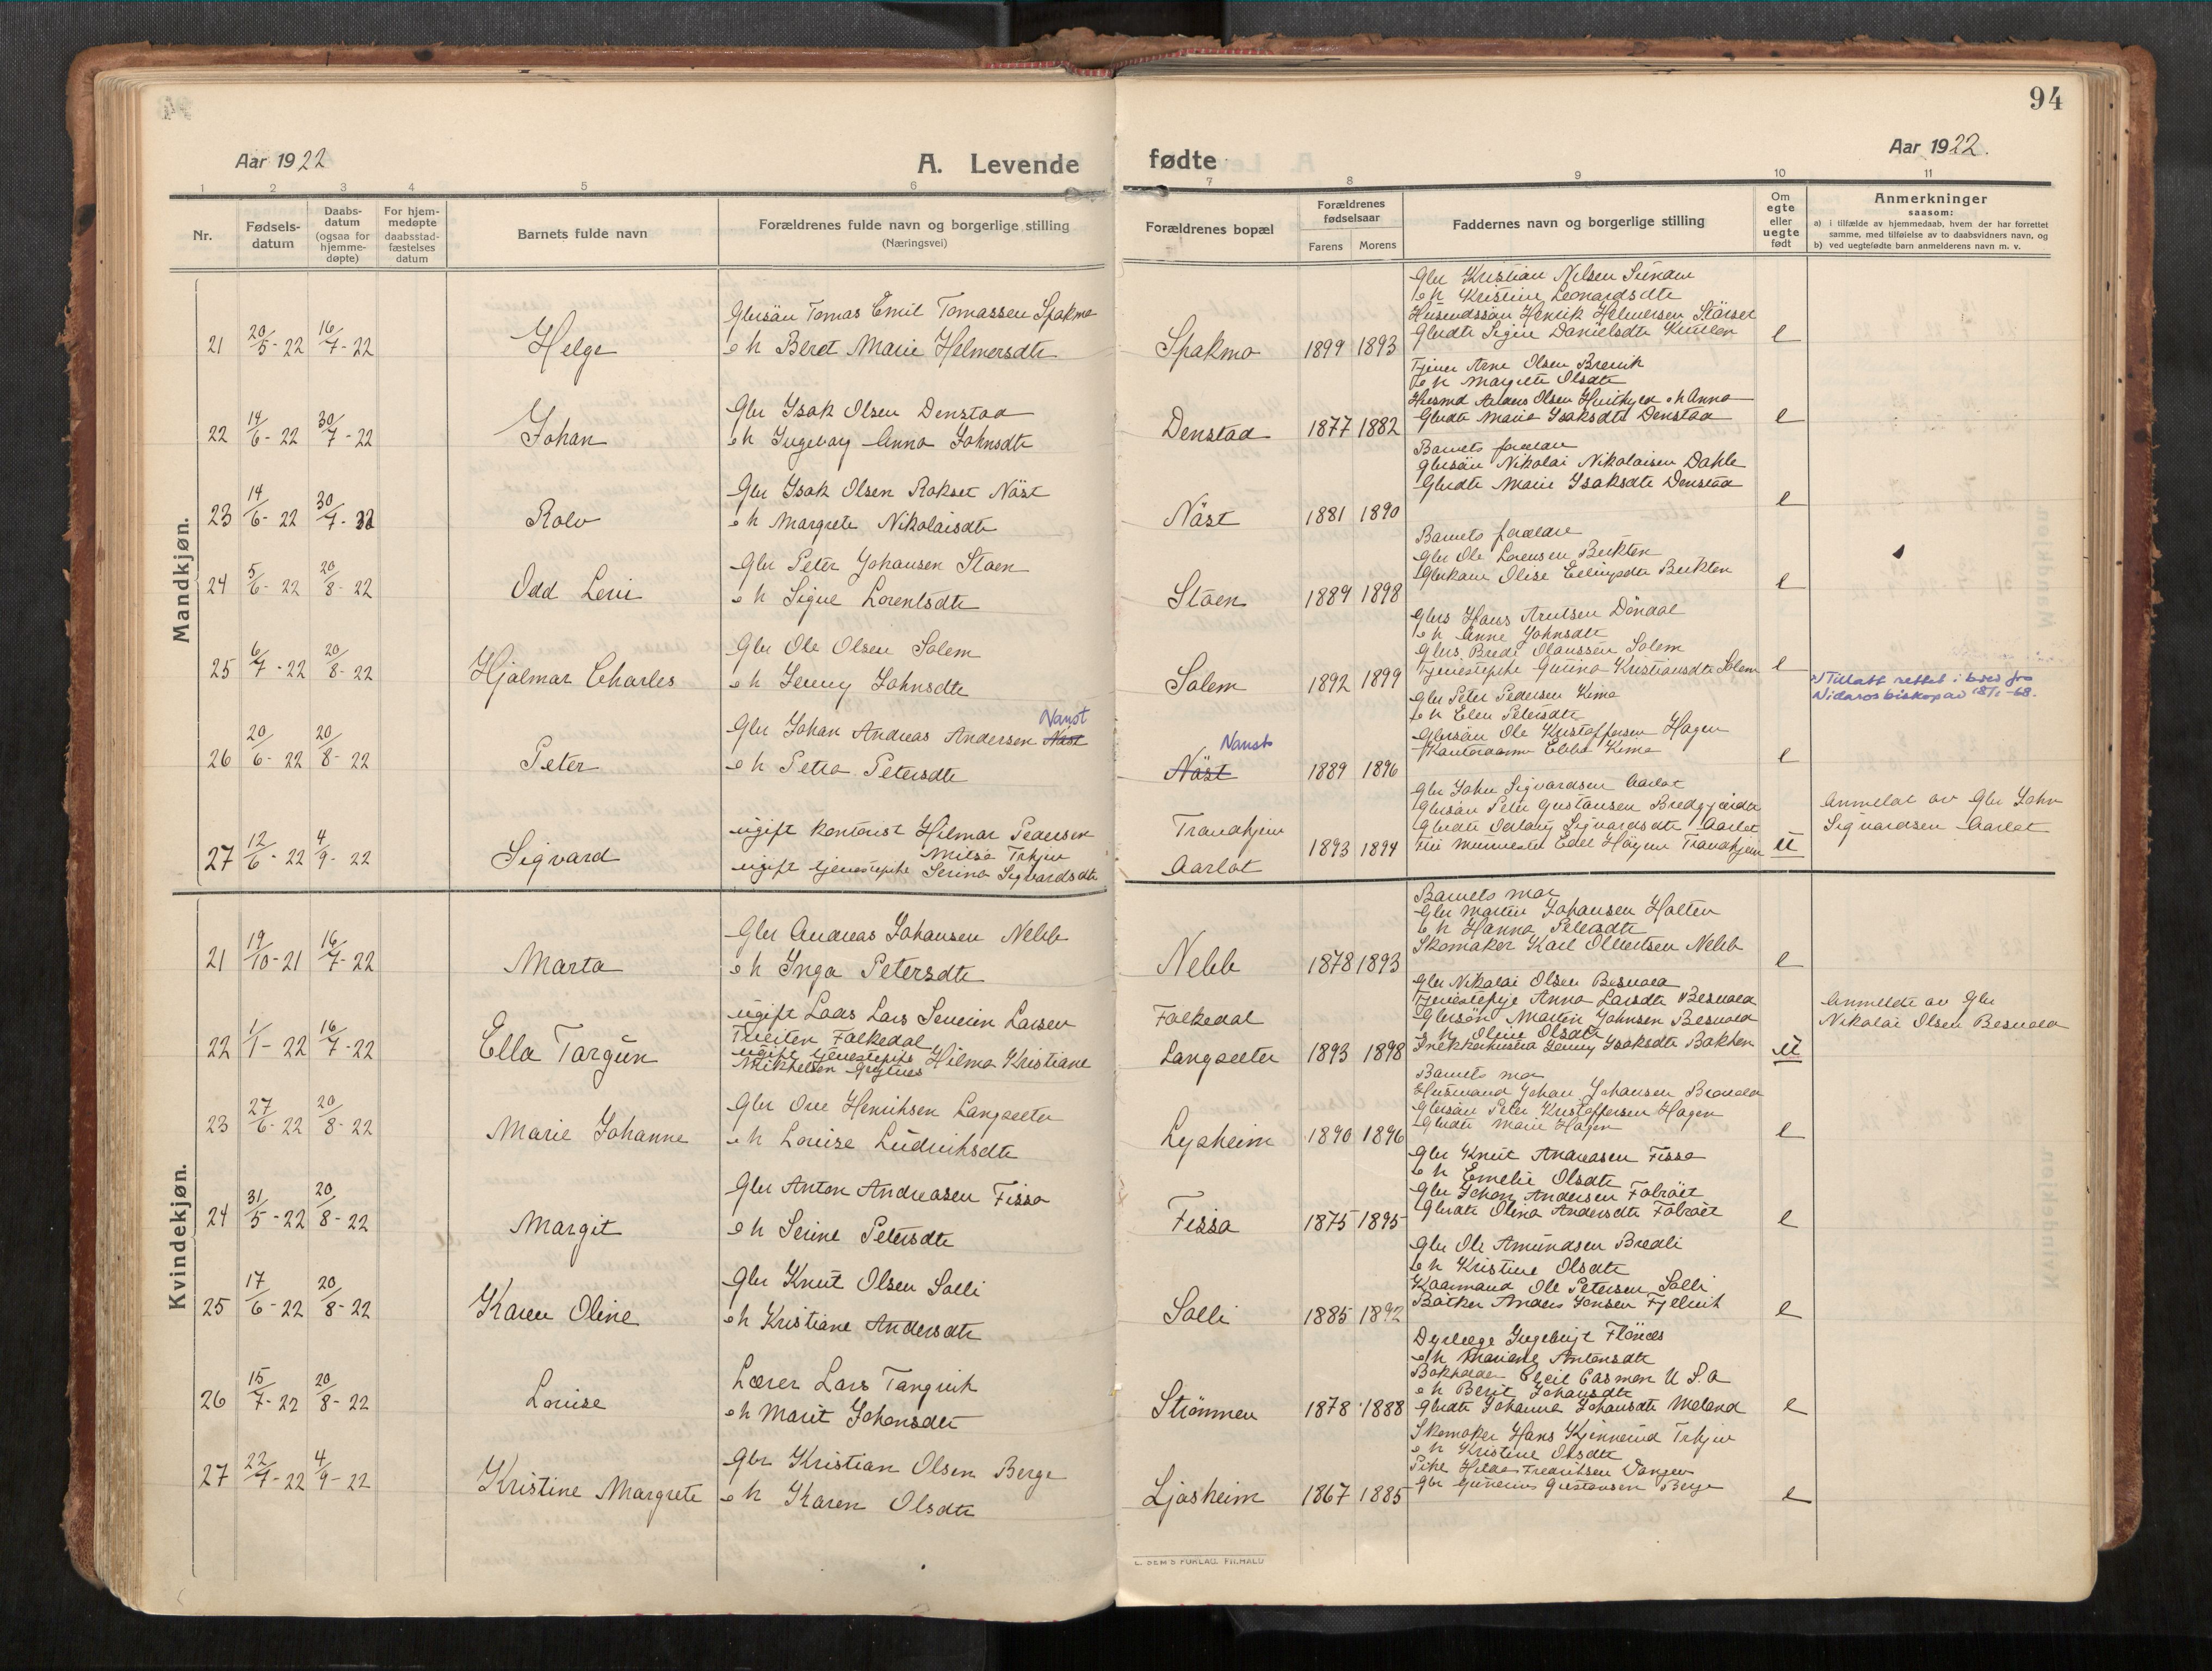 94
Aar 1922
A. Levende
fødte
Aar 1922.
1 2 3 4 5 6 7 8 9 10 11
Nr.
Fødsels-
datum
Daabs-
datum
(ogsaa for
hjemme-
døpte)
For hjem-
medøpte
daabsstad-
fæstelses
datum
Barnets fulde navn
Forældrenes fulde navn og borgerlige stilling
(Næringsvei)
Forældrenes bopæl
Forældrenes
fødselsaar
Farens Morens
Faddernes navn og borgerlige stilling
Om
egte
eller
uegte
født
Anmerkninger
saasom:
a) i tilfælde av hjemmedaab, hvem der har forrettet
samme, med tilføielse av to daabsvidners navn, og
b) ved uegtefødte barn anmelderens navn m. v.
Mandkjøn.
21 20/5-22 16/7-22 Helge
Gbrsøn Tomas Emil Tomassen Spakmo
o h Beret Marie Helmersdtr
Spakmo 1899 1893
Gbr Kristian Nilsen
o h Kristine Leonardsdtr
Husmdssøn Henrik Helmersen Størset
Gbrdtr Signe Danielsdtr
e
22 14/6-22 30/7-22 Johan
Gbr Isak Olsen Denstad
o h Ingeborg Anna Johnsdtr
Denstad 1877 1882
Tjener Arne Olsen Brevik
o h Margrete Olsdtr
Husmd Anders Olsen o h Anna
Gbrdtr Marie Isaksdtr Denstad
e
23 14/6-22 30/7-22 Rolv
Gbr Isak Olsen Rokset Näst
o h Margrete Nikolaisdtr
Näst 1881 1890
Barnets forældre
Gbrsøn Nikolai Nikolaisen Dahle
Gbrdtr Marie Isaksdtr Denstad
e
24 5/6-22 20/8-22 Odd Levi
Gbr Peter Johansen Støen
o h Signe Lorentsdtr
Støen 1889 1898
Barnets forældre
Gbr Ole Lorensen Bukten
Gbrkone Olise Bukten
e
25 6/7-22 20/8-22 Hjalmar Charles
Gbr Ole Olsen Solem
o h Jenny Johnsdtr
Solem 1892 1899
Gbrs Hans Arntsen
o h Anne Johnsdtr
Gbrs Brede Olaussen Solem
Tjenestepike Gurina Kristiansdtr Solem
e
26 20/6-22 20/8-22 Peter
Nanst
Gbr Johan Andreas Andersen Näst
o h Petra Petersdtr
Nansts
Näst 1889 1896
Gbr Peter Pedersen Kimo
o h Elen Petersdtr
Gbrsøn Ole Kristoffersen Hagen
Ebba Kimo
e
Tillatt rettet i brev fra
Nidaros biskop av
27 12/6-22 4/9-22 Sigvard
ugift kontorist Hilmar Pedersen
Trhjem
ugift tjenestepike Serina Sigvardsdtr
Trondhjem
Aarlot 1893 1894
Gbr John Sigvardsen Aarlot
Gbrsøn Peter Gustavsen
Gbrdtr Sigvardsdtr Aarlot
Edel Trondhjem
u
Anmeldt av Gbr John
Sigvardsen Aarlot
Kvindekjøn.
21 19/10-21 16/7-22 Marta
Gbr Andreas Johansen Nebb
o h Inga Petersdtr
Nebb 1878 1893
Barnets mor
Gbr Martin Johansen Holten
o h Hanna Petersdtr
Skomaker Karl Nebb
e
22 1/1-22 16/7-22 Ella Torgun
ugift Lars Severin Larsen
Falkedal
ugift tjenestepike Hilma Kristiane
Mikkelsen
Falkedal
Langsæter 1893 1898
Gbr Nikolai Olsen Besvold
Tjenestepige Anna Larsdtr Besvold
Gbrsøn Martin Johnsen Besvold
o h Oline Olsdtr
Snekkerhustru Jenny Isaksdtr
u
Anmeldt av Gbr
Nikolai Olsen Besvold
23 27/6-22 20/8-22 Marie Johanne
Gbr Ove Henriksen Langsæter
o h Louise Ludviksdtr
Lysheim 1890 1896
Barnets mor
Husmand Johan Johansen
Gbrsøn Peter Kristoffersen Hagen
Gbrdtr Marie Hagen
e
24 31/5-22 20/8-22 Margit
Gbr Anton Andreasen Fissa
o h Serine Petersdtr
Fissa 1875 1895
Gbr Knut Andreasen Fissa
o h Emelie Olsdtr
Gbr Johan Andersen
Gbrdtr Olina Andersdtr
e
25 17/6-22 20/8-22 Karen Oline
Gbr Knut Olsen Solli
o h Kristiane Andersdtr
Solli 1885 1892
Gbr Ole Amundsen Bredli
o h Kristine Olsdtr
Kaarmand Ole Petersen Solli
Anders Jensen
e
26 15/7-22 20/8-22 Louise
Lærer Lars Tangvik
o h Marit Johansdtr
Strømmen 1878 1888
Dyrlæge Ingebrigt
o h Mariane Antonsdtr
Bokholder U.S.A
o h Berit Johansdtr
Gbrdtr Johanna Johansdtr Meland
e
27 22/7-22 4/9-22 Kristine Margrete
Gbr Kristian Olsen Berge
o h Karen Olsdtr
Ljosheim 1867 1885
Skomaker Hans Kjennerud Trhjem
o h Kristine Olsdtr
Pike Hilda Fredriksen
Gbr Gunerius Gustavsen Berge
e
E. SEM'S FORLAG. FR.HALD